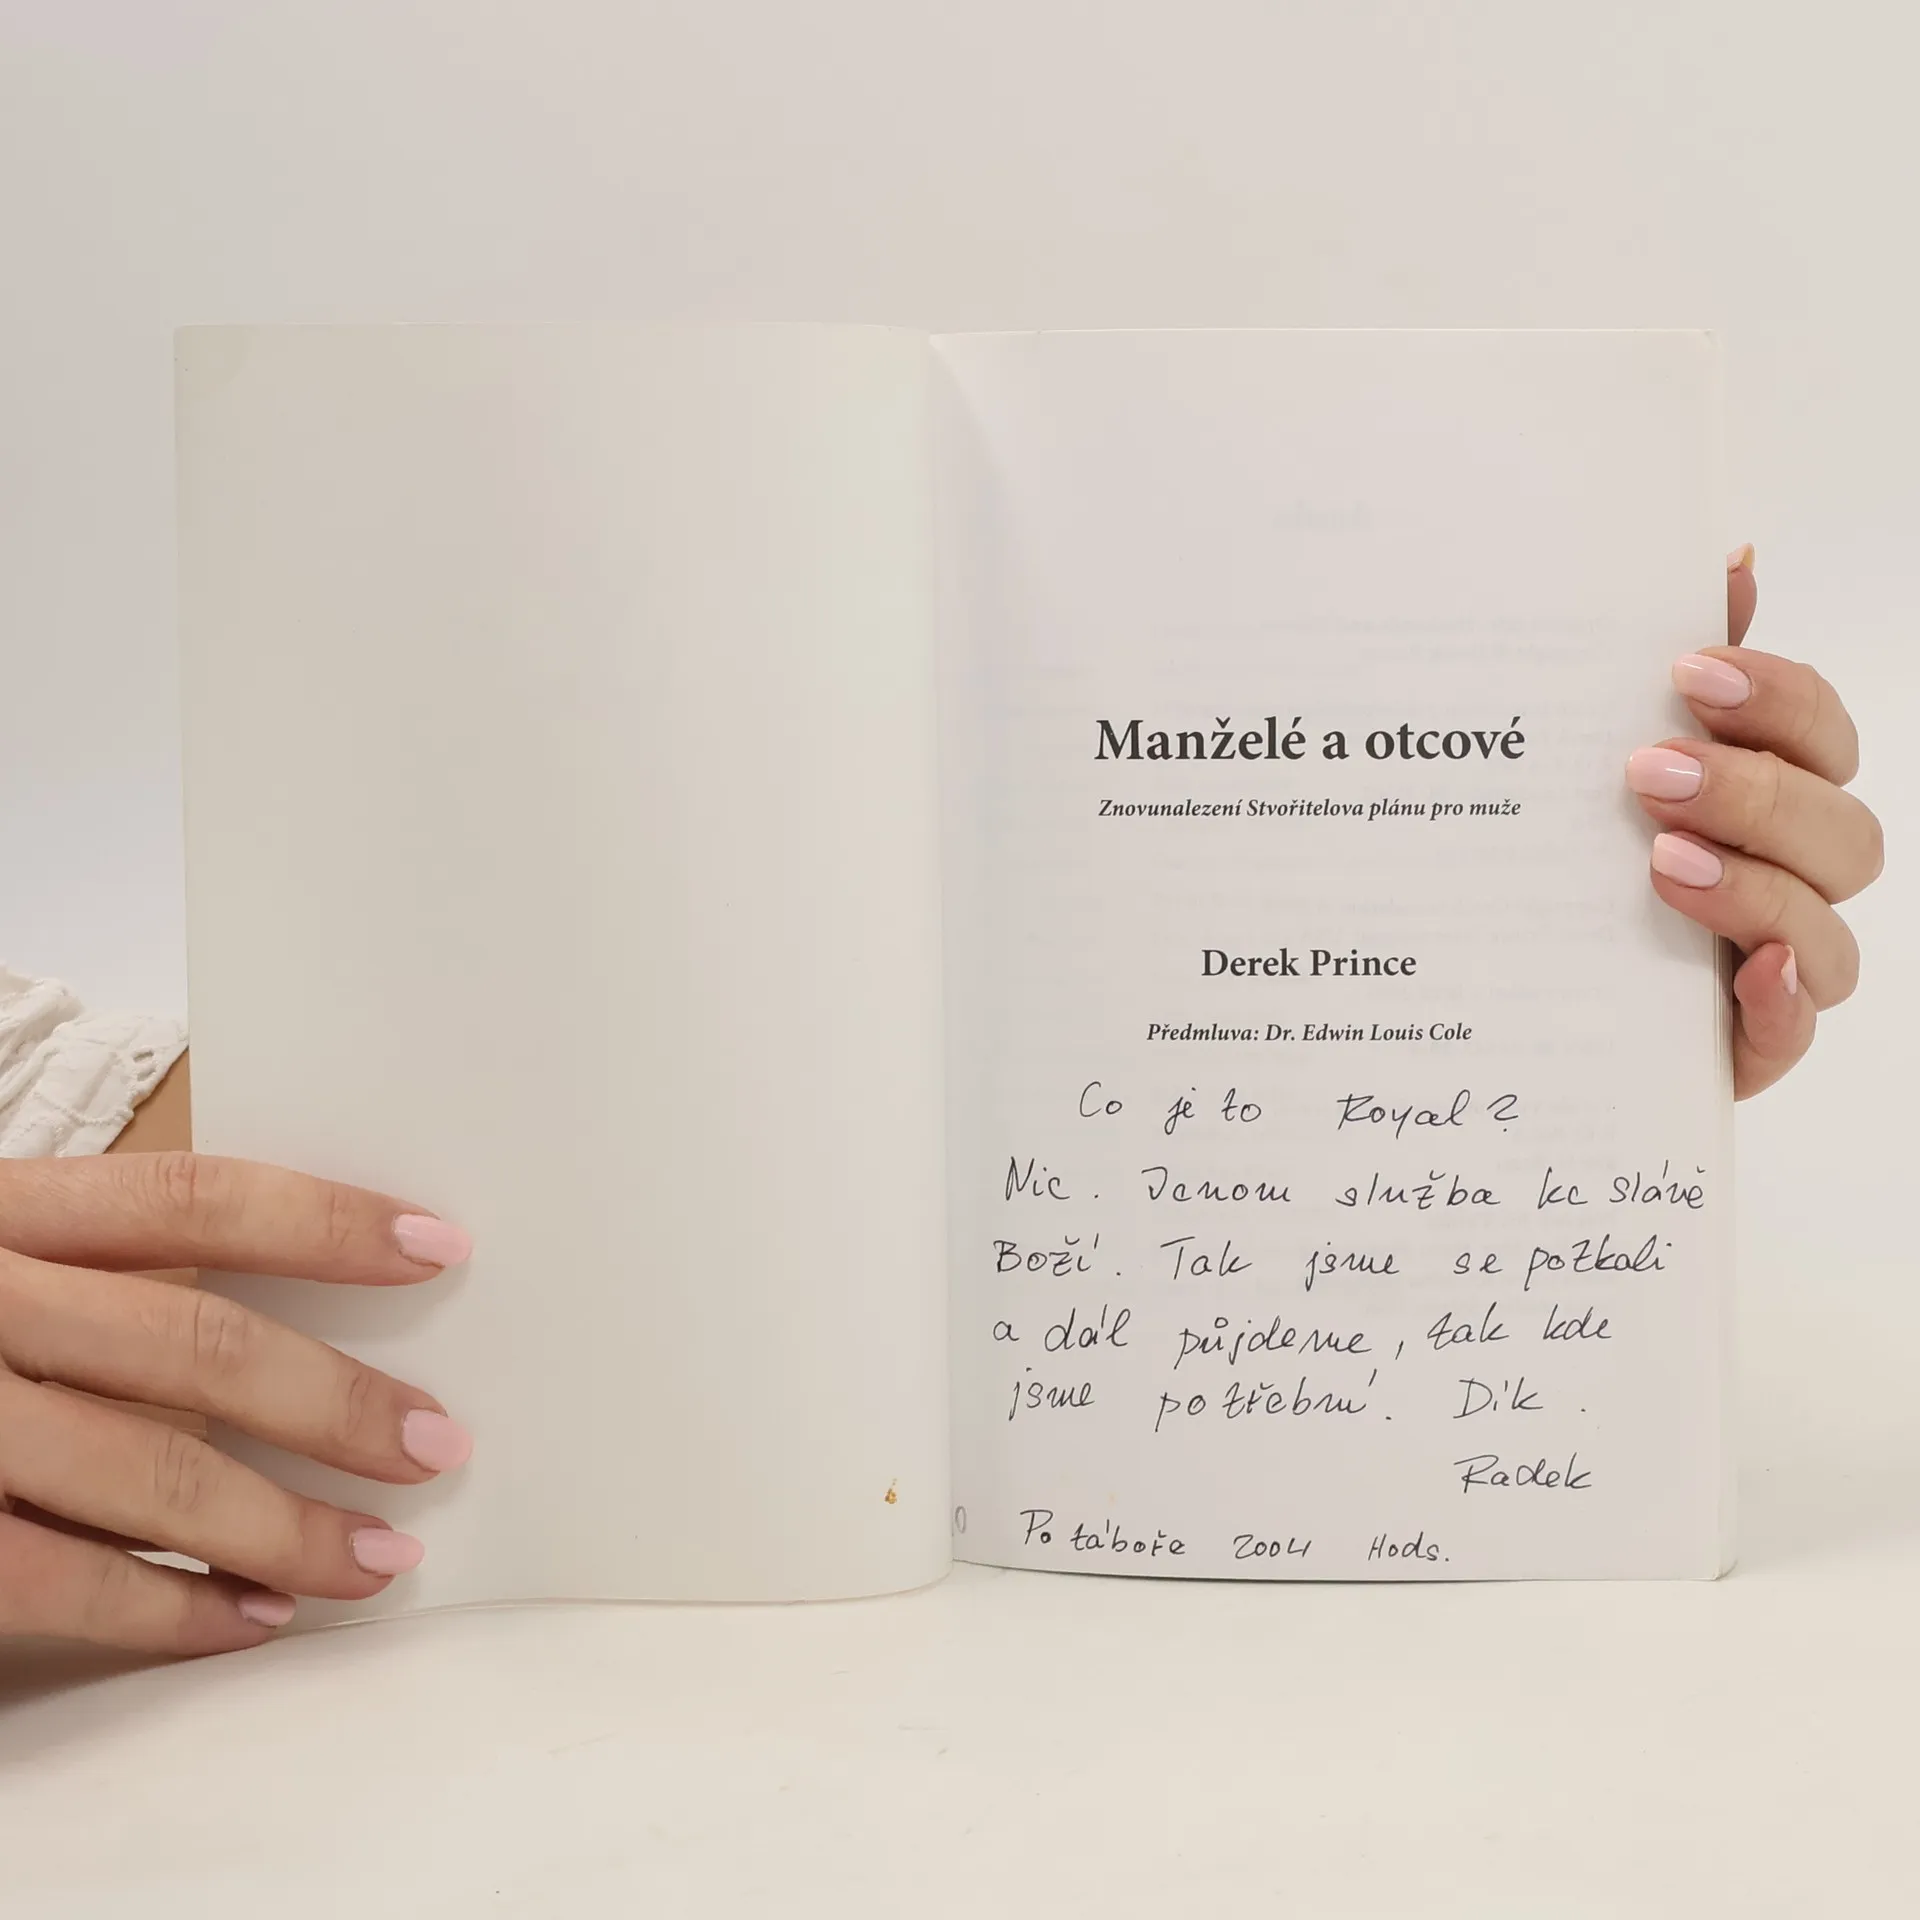 Manželé a otcové
Znovunalezení Stvořitelova plánu pro muže
Derek Prince
Předmluva: Dr. Edwin Louis Cole
Co je to Royal?
Nic. Jenom služba ke slávě
Boží. Tak jsme se potkali
a dál půjdeme, tak kde
jsme potřební. Dík.
Radek
Po táboře 2004 Hods.